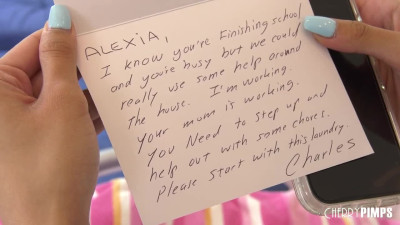 ALEXIA,
I know you're Finishing school
and you're busy but we could
really use some help around
the house. I'm working.
Your mum is working.
You Need to step up and
help out with some chores.
Please start with this laundry.
Charles
CHERRYPIMPS